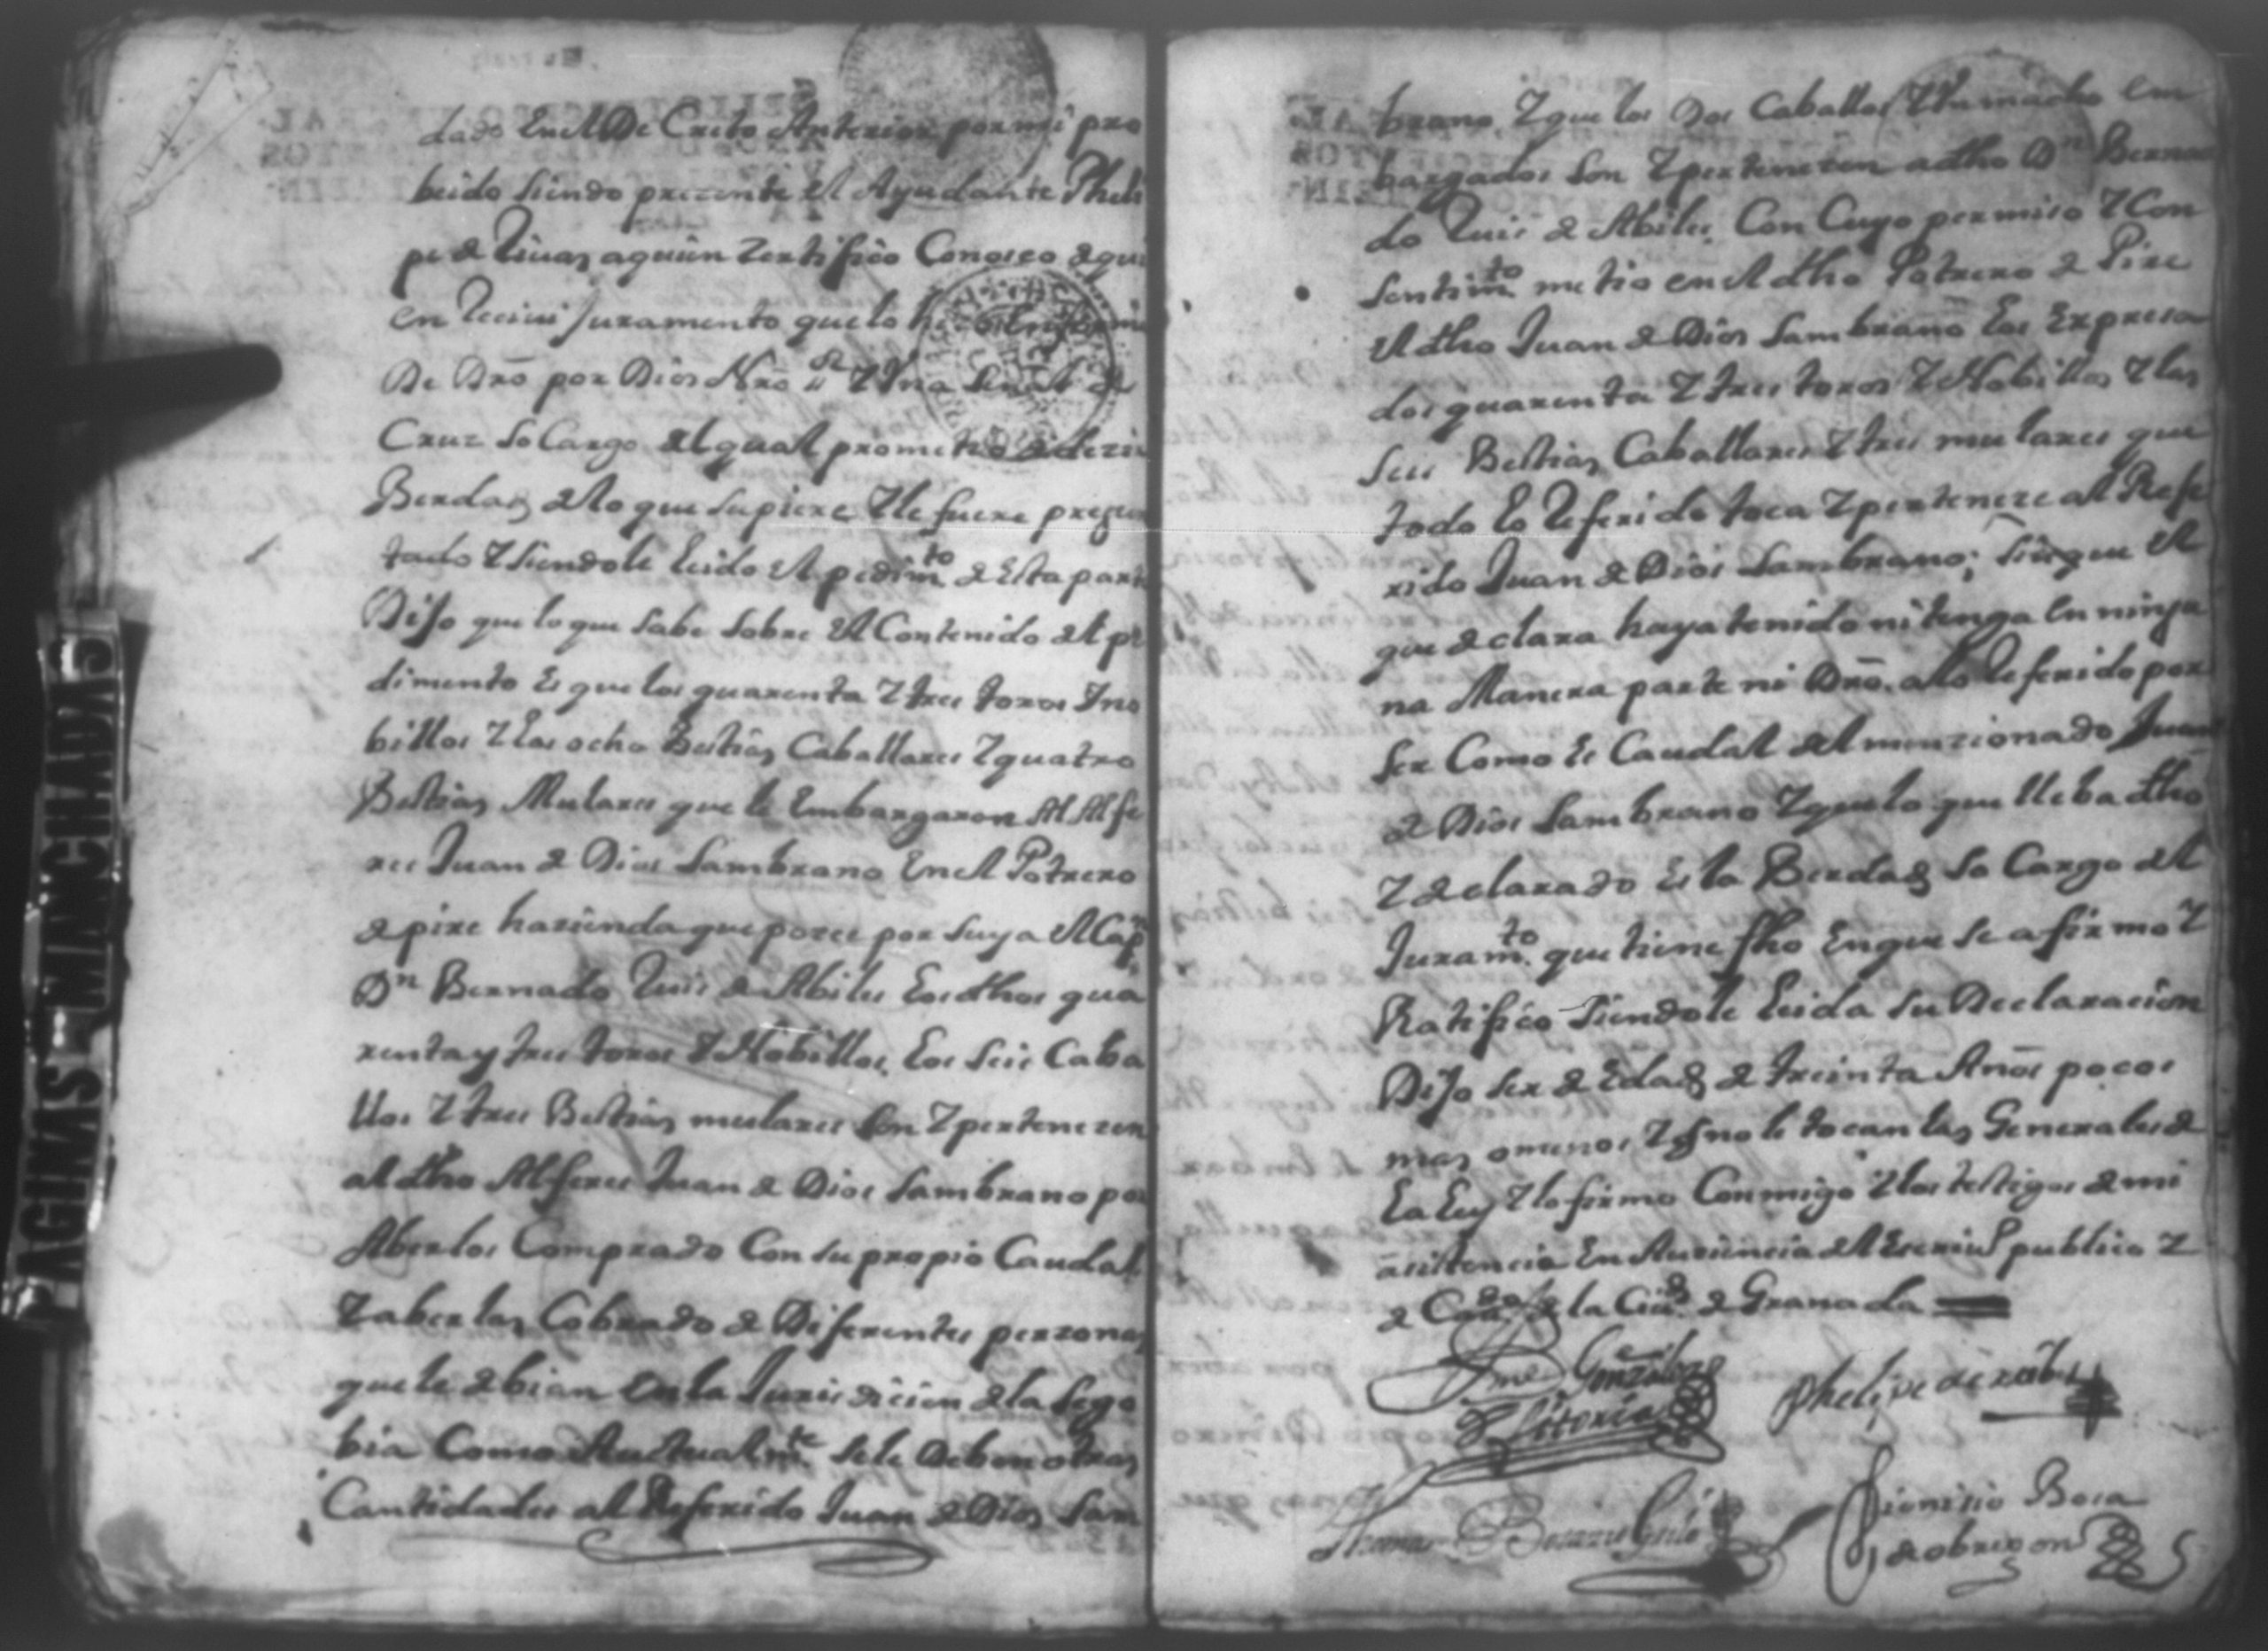 dado En el De Creto Anterior por mi pro
beido siendo prezente el Ayudante Pheli
pe de Riuas a quien Zertifico Conosco de qui
en Reciui Juramento que lo hizo En forma
De Dro por Dios Nro Sr Z Vna Señal de
Cruz So Cargo del qual prometio de dezir
Berdad de lo que Supiere Z le fuere pregun
tado Z Siendole leido el pedimto de Esta parte
Dijo que lo que Sabe Sobre el Contenido del pe
dimento Es que los quarenta Z tres toros Y no
billos Z las ocho Bestias Caballares Z quatro
Bestias Mulares que le Embargaron Al Alfe
res Juan de Dios Sambrano En el Potrero
de pire hazienda que pozee por Suya el Cap
Dn Bernado Ruis de Abiles Los dhos qua
renta y tres toros Z Nobillos, Los Seis Caba
llos Z tres Bestias mulares Son Z pertenezen
al dho Alferes Juan de Dios Sambrano por
Aberlos Comprado Con Su propio Caudal
Z aberlas Cobrado de Diferentes perzonas
que le debian En la Jurisdicion de la Sego
bia Como Auctualmte Se le Deben otras
Cantidades al Referido Juan de Dios Sam
brano, Z que los Dos Caballos Z Vn macho em
bargados Son Z pertenezen a dho Dn Berna
do Ruis de Abiles, Con Cuyo permiso Z Con
Sentimto metio en el dho Potrero de Pire
el dho Juan de Dios Sambrano Los Expresa
dos quarenta Z tres toros Z Nobillos Z las
Seis Bestias Caballares Z tres mulares que
todo lo Referido toca Z perteneze al Refe
rido Juan de Dios Sambrano; Sin que el
que declara haya tenido ni tenga En ningu
na Manera parte ni Dro. a lo Referido por
Ser Como Es Caudal del menzionado Juan
de Dios Sambrano Z que lo que lleba dho
Z declarado Es la Berdad So Cargo del
Juramto que tiene fho En que Se afirmo Z
Ratifico Siendole leida Su Declaracion
Dijo Ser de Edad de treinta Años pocos
mas o menos Z q no le tocan las Generales de
La Ley Z lo firmo Conmigo Z los testigos de mi
asistencia En Ausiencia del Escriuo publico Z
de la Ciud de Granada
Gonzales
Phelipe de
Vitoria
Dionisio Bosa
de obregon
PAGINAS MANCHADAS